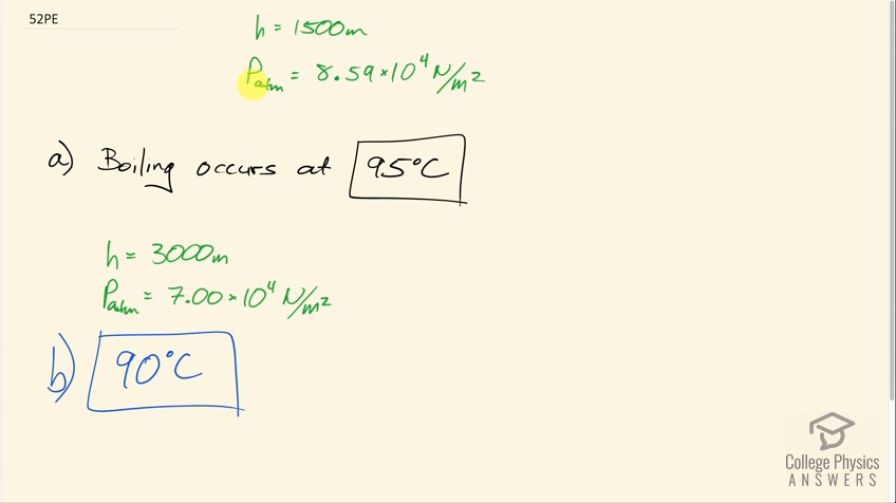 52PE
h = 1500m
Patm = 8.59×10⁴ N/m²
a) Boiling occurs at 95°C
h = 3000m
Patm = 7.00×10⁴ N/m²
b) 90°C
College Physics
ANSWERS